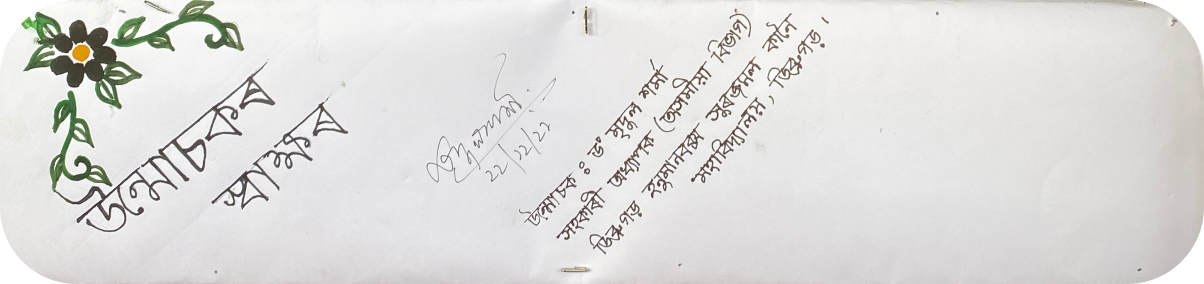 উন্মোচকৰ
স্বাক্ষৰ
মৃদুল শৰ্মা
২২/১২/২২
উন্মোচক : ড° মৃদুল শৰ্মা
সহকাৰী অধ্যাপক (অসমীয়া বিভাগ)
ডিব্ৰুগড় হনুমানবক্স সূৰজমল কানৈ
মহাবিদ্যালয়, ডিব্ৰুগড়।